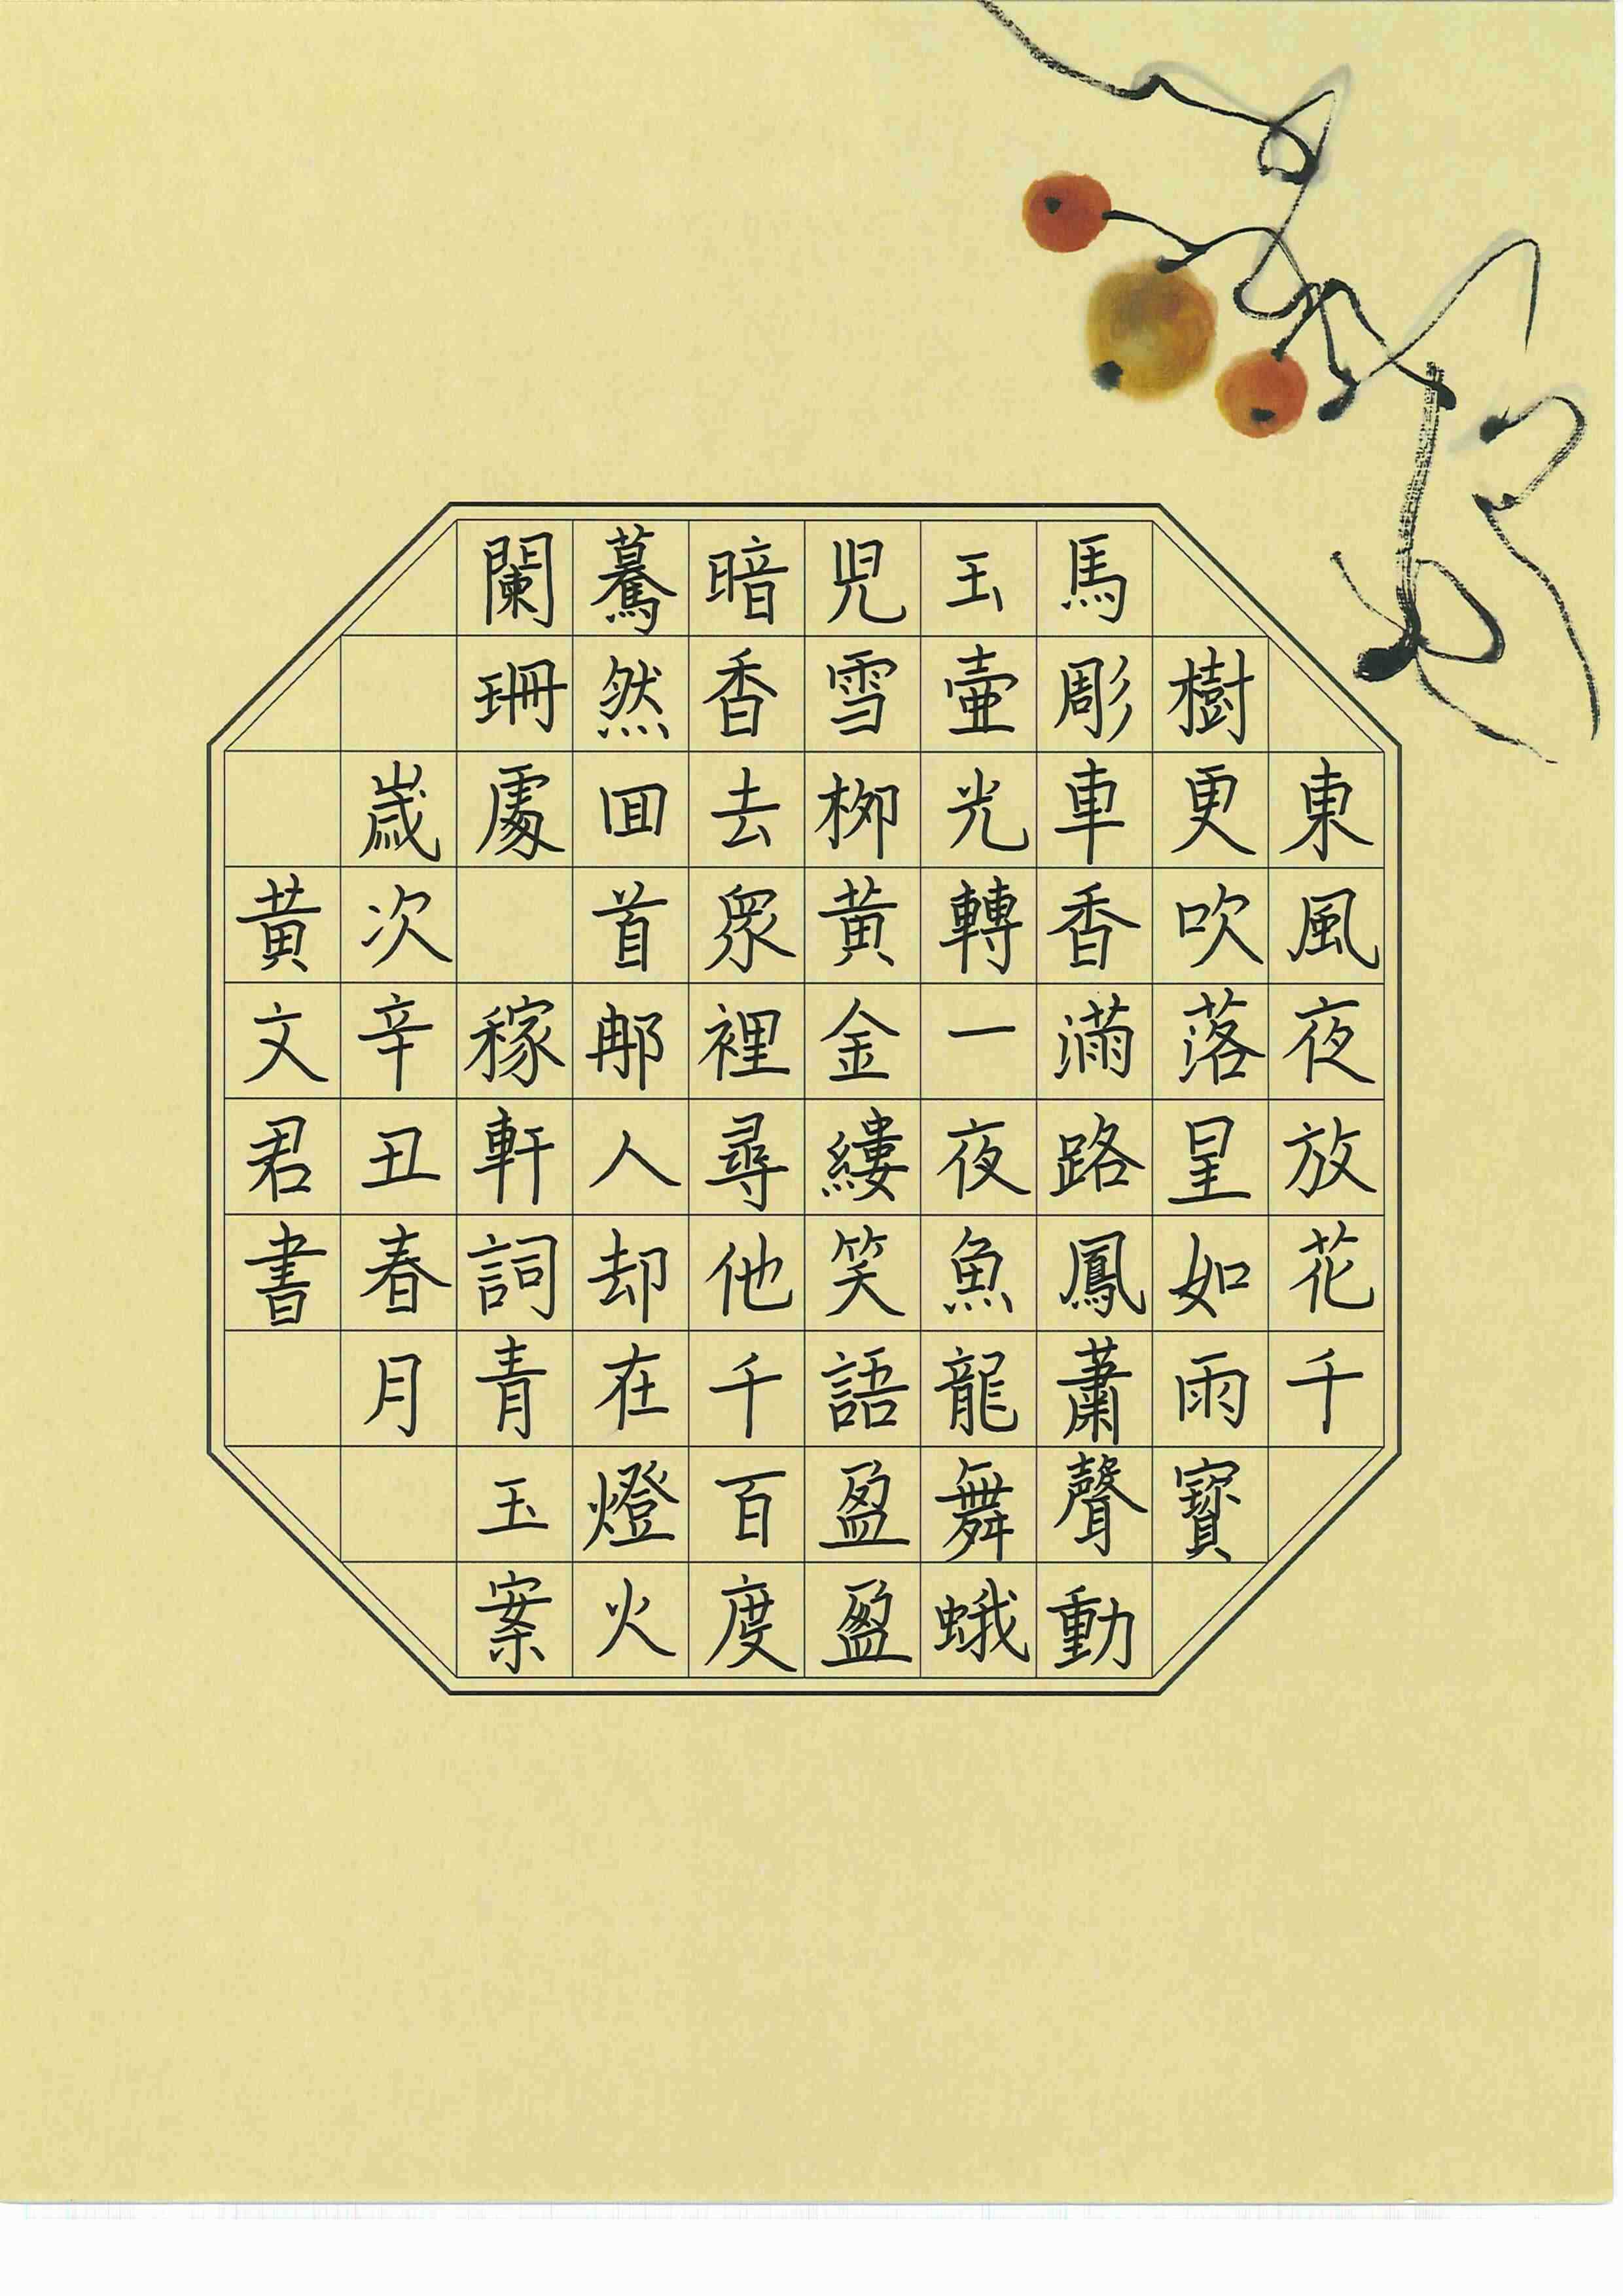 東風夜放花千
樹更吹落星如雨寶
馬彫車香滿路鳳蕭聲動
玉壷光轉一夜魚龍舞蛾
兒雪柳黃金縷笑語盈盈
暗香去眾裡尋他千百度
驀然回首那人却在燈火
闌珊處 稼軒詞青玉案
歲次辛丑春月
黃文君書